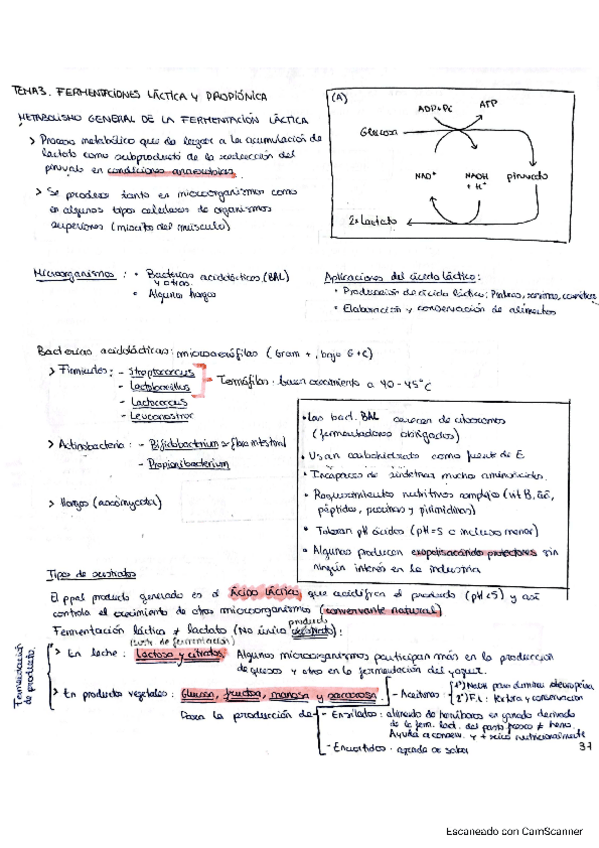 TEMA3. FERMENTACIONES LÁCTICA Y PROPIÓNICA
METABOLISMO GENERAL DE LA FERMENTACIÓN LÁCTICA
> Proceso metabólico que da lugar a la acumulación de
lactato como subproducto de la reducción del
piruvato en condiciones anaerobias.
> Se produce tanto en microorganismos como
en algunos tipos celulares de organismos
superiores (miocito del músculo)
(A)
ADP+Pi
ATP
Glucosa
NAD+
NADH
+ H+
piruvato
2x Lactato
Microorganismos: • Bacterias acidolácticas (BAL)
y otras.
• Algunos hongos
Aplicaciones del ácido láctico:
• Producción de ácido láctico:
• Elaboración y conservación de alimentos
Bacterias acidolácticas: microaerófilas (Gram +, bajo G+C)
> Firmicutes: - Streptococcus
- Lactobacillus
- Termófilas: buen crecimiento a 40-45°C
- Lactococcus
- Leuconostoc
> Actinobacteria: - Bifidobacterium flora intestinal
- Propionibacterium
> Hongos (ascomycota)
• Las bact. BAL carecen de citocromos
(fermentadores obligados)
• Usan carbohidratos como fuente de E
• Incapaces de sintetizar muchos aminoácidos.
• Requerimientos nutritivos complejos (vit B, aa,
péptidos, purinas y pirimidinas)
• Toleran pH ácidos (pH=5 e incluso menor)
• Algunos producen exopolisacáridos protectores sin
ningún interés en la industria
Tipos de sustratos
El ppal producto generado es el Ácido láctico, que acidifica el producto (pH<5) y así
controla el crecimiento de otros microorganismos (conservante natural)
producto
Fermentación láctica ≠ lactato (No único sustrato):
Fermentación
de producto.
(sust. de fermentación)
> En leche: Lactosa y citratos Algunos microorganismos participan más en la producción
de quesos y otros en la fermentación del yogur.
> En producto vegetales: Glucosa, fructosa, manosa y sacarosa
- Aceitunas: 1º) NaOH para eliminar oleuropeína
2º) F.L: textura y conservación
Para la producción de
- Ensilados: alimento de herbívoros en ganado derivado
de la ferm. lact. del pasto fresco ≠ heno.
Ayuda a conserv. y + rico nutricionalmente
- Encurtidos: agrada de sabor
37
Escaneado con CamScanner